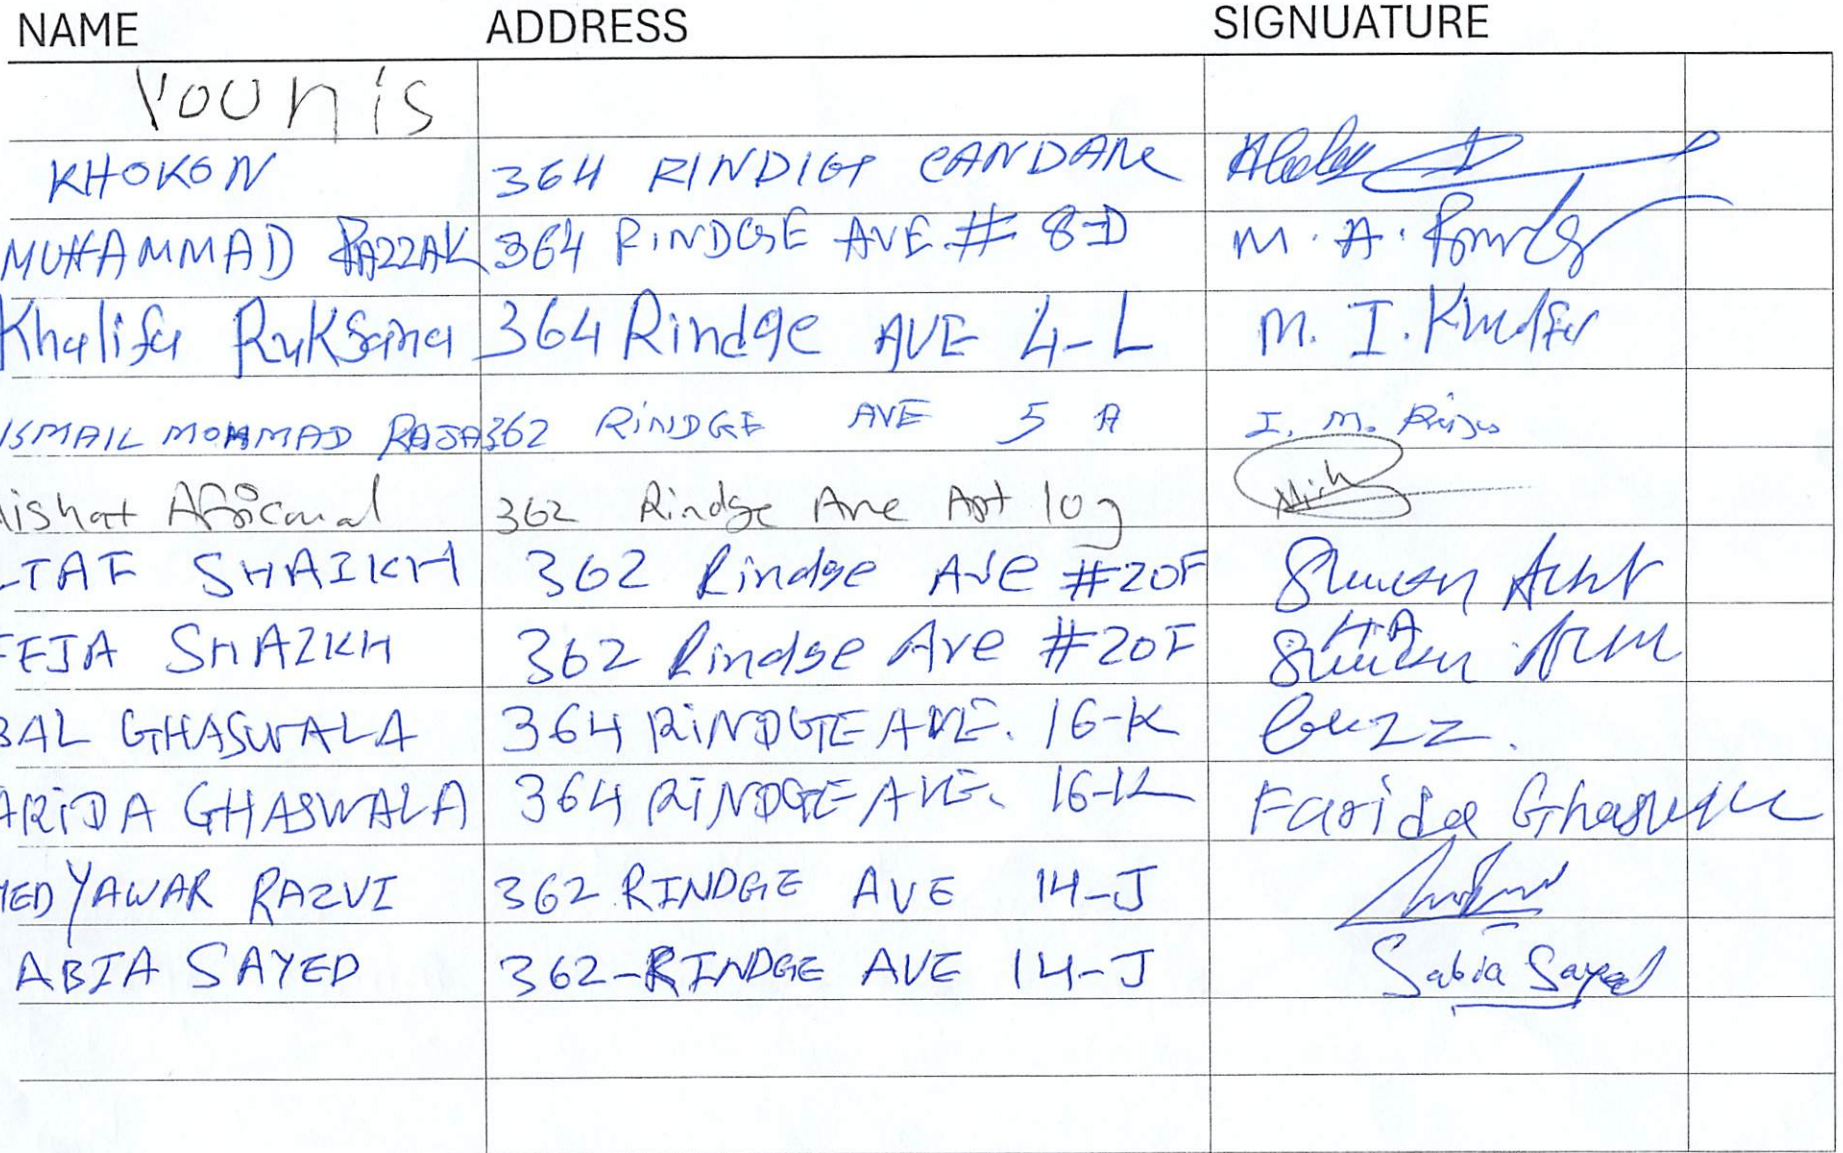 NAME ADDRESS SIGNUATURE
Younis
KHOKON 364 RINDIGE
MUHAMMAD RAZZAK 364 RINDGE AVE. # 8-D M. A.
Khalifa Ruksana 364 Rindge AVE 4-L M. I.
ISMAIL MOHMMAD RAJA 362 RINDGE AVE 5 A I. M.
362 Rindge Ave Apt 10J
LTAF SHAIKH 362 Rindge Ave #20F
FEJA SHAIKH 362 Rindge Ave #20F
BAL GHASWALA 364 RINDGE AVE. 16-K
ARIDA GHASWALA 364 RINDGE AVE. 16-K Farida Ghaswala
MED YAWAR RAZVI 362 RINDGE AVE 14-J
ABIA SAYED 362-RINDGE AVE 14-J Sabia Sayed